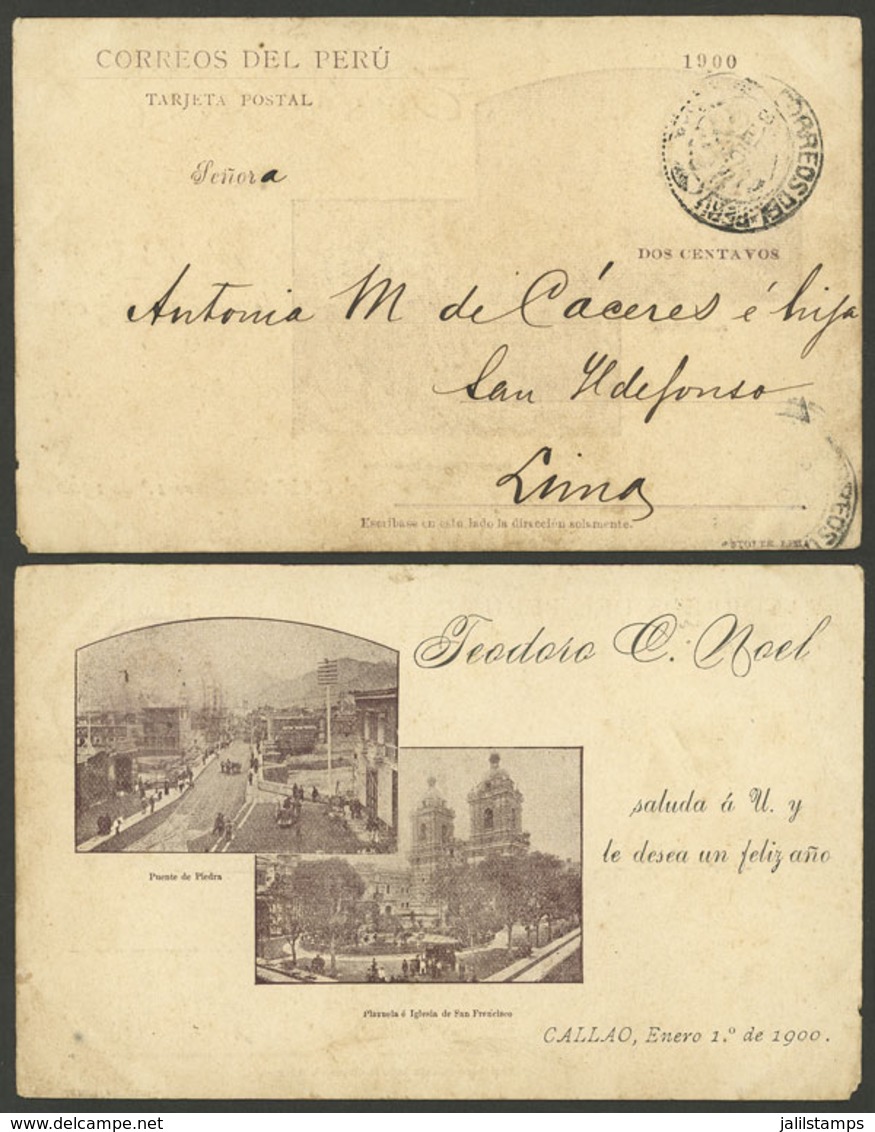 CORREOS DEL PERÚ
1900
TARJETA POSTAL
Señora
CORREOS DEL PERU
DOS CENTAVOS
Antonia M de Cáceres é hija
San Ildefonso
Lima
Escríbase en este lado la dirección solamente.
Teodoro C. Noel
saluda á U. y
le desea un feliz año
Puente de Piedra
Plazuela é Iglesia de San Francisco
CALLAO, Enero 1.º de 1900.
jalilstamps